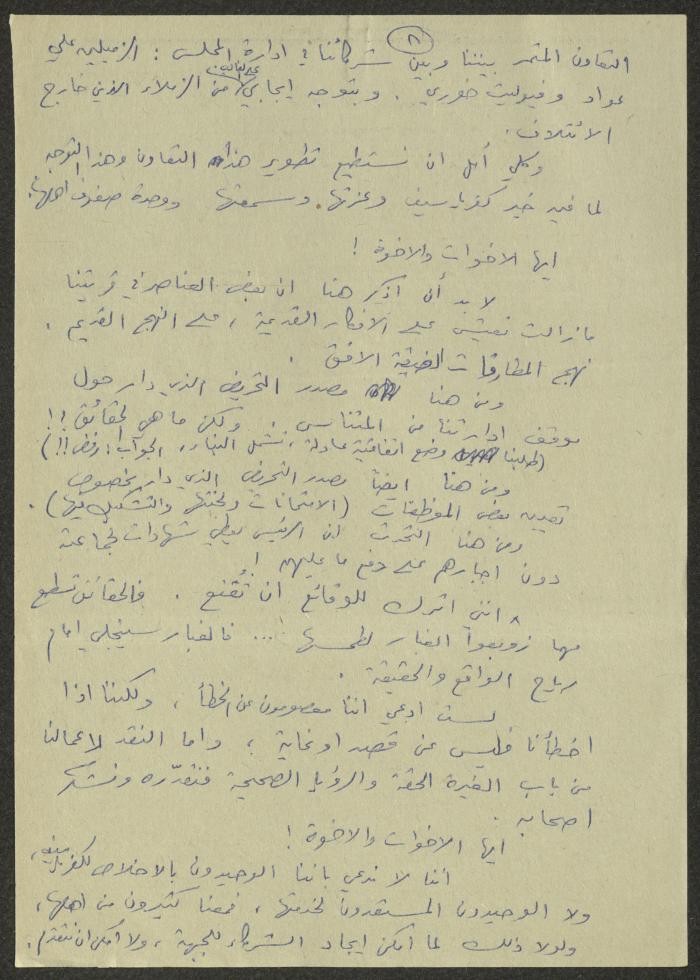 ٨
التعاون المثمر بيننا وبين شركائنا في ادارة المجلس : الزميلين علي
عواد وفيوليت خوري . وبتوجه ايجابي من الزملاء الذين خارج
الائتلاف .
وكلي أمل ان نستطيع تطوير هذا التعاون وهذا التوجه
لما فيه خير كفرياسيف وعزتها وسمعتها ووحدة صفوف اهلها .
ايها الاخوات والاخوة !
لا بد أن اذكر هنا ان بعض العناصر في قريتنا
ما زالت تعيش على الافكار القديمة ، على النهج القديم .
نهج المطارقات الضيقة الافق .
ومن هنا مصدر التحريض الذي دار حول
موقف ادارتنا من المتناس . ولكن ما هي الحقائق !!
(طلبنا وضع اتفاقية عادلة ، تشمل النبار ، الجواب : رفض !!)
ومن هنا ايضاً مصدر التحريض الذي دار بخصوص
تعيين بعض الموظفات (الامتحانات ولجنتها والتشكيك فيها) .
ومن هنا التحدث ان الرئيس يعطي شهادات لجماعته
دون اجبارهم على دفع ما عليهم !
انني اترك للوقائع ان تُقنع . فالحقائق تسطع
مهما زوبعوا الغبار لطمسها ... فالغبار سينجلي امام
رياح الواقع والحقيقة .
لست ادعي اننا معصومون عن الخطأ ، ولكننا اذا
اخطأنا فليس عن قصد او غاية ؛ واما النقد لاعمالنا
من باب الغيرة الحقة والرؤيا الصحيحة فنقدّره ونشكر
اصحابه .
ايها الاخوات والاخوة !
اننا لا ندعي باننا الوحيدون بالاخلاص لكفرياسيف ،
ولا الوحيدون المستعدون لخدمتها ، فمعنا كثيرون من اهلها ،
ولولا ذلك لما امكن ايجاد الشركاء للجبهة ، ولا امكن ان نتقدم .